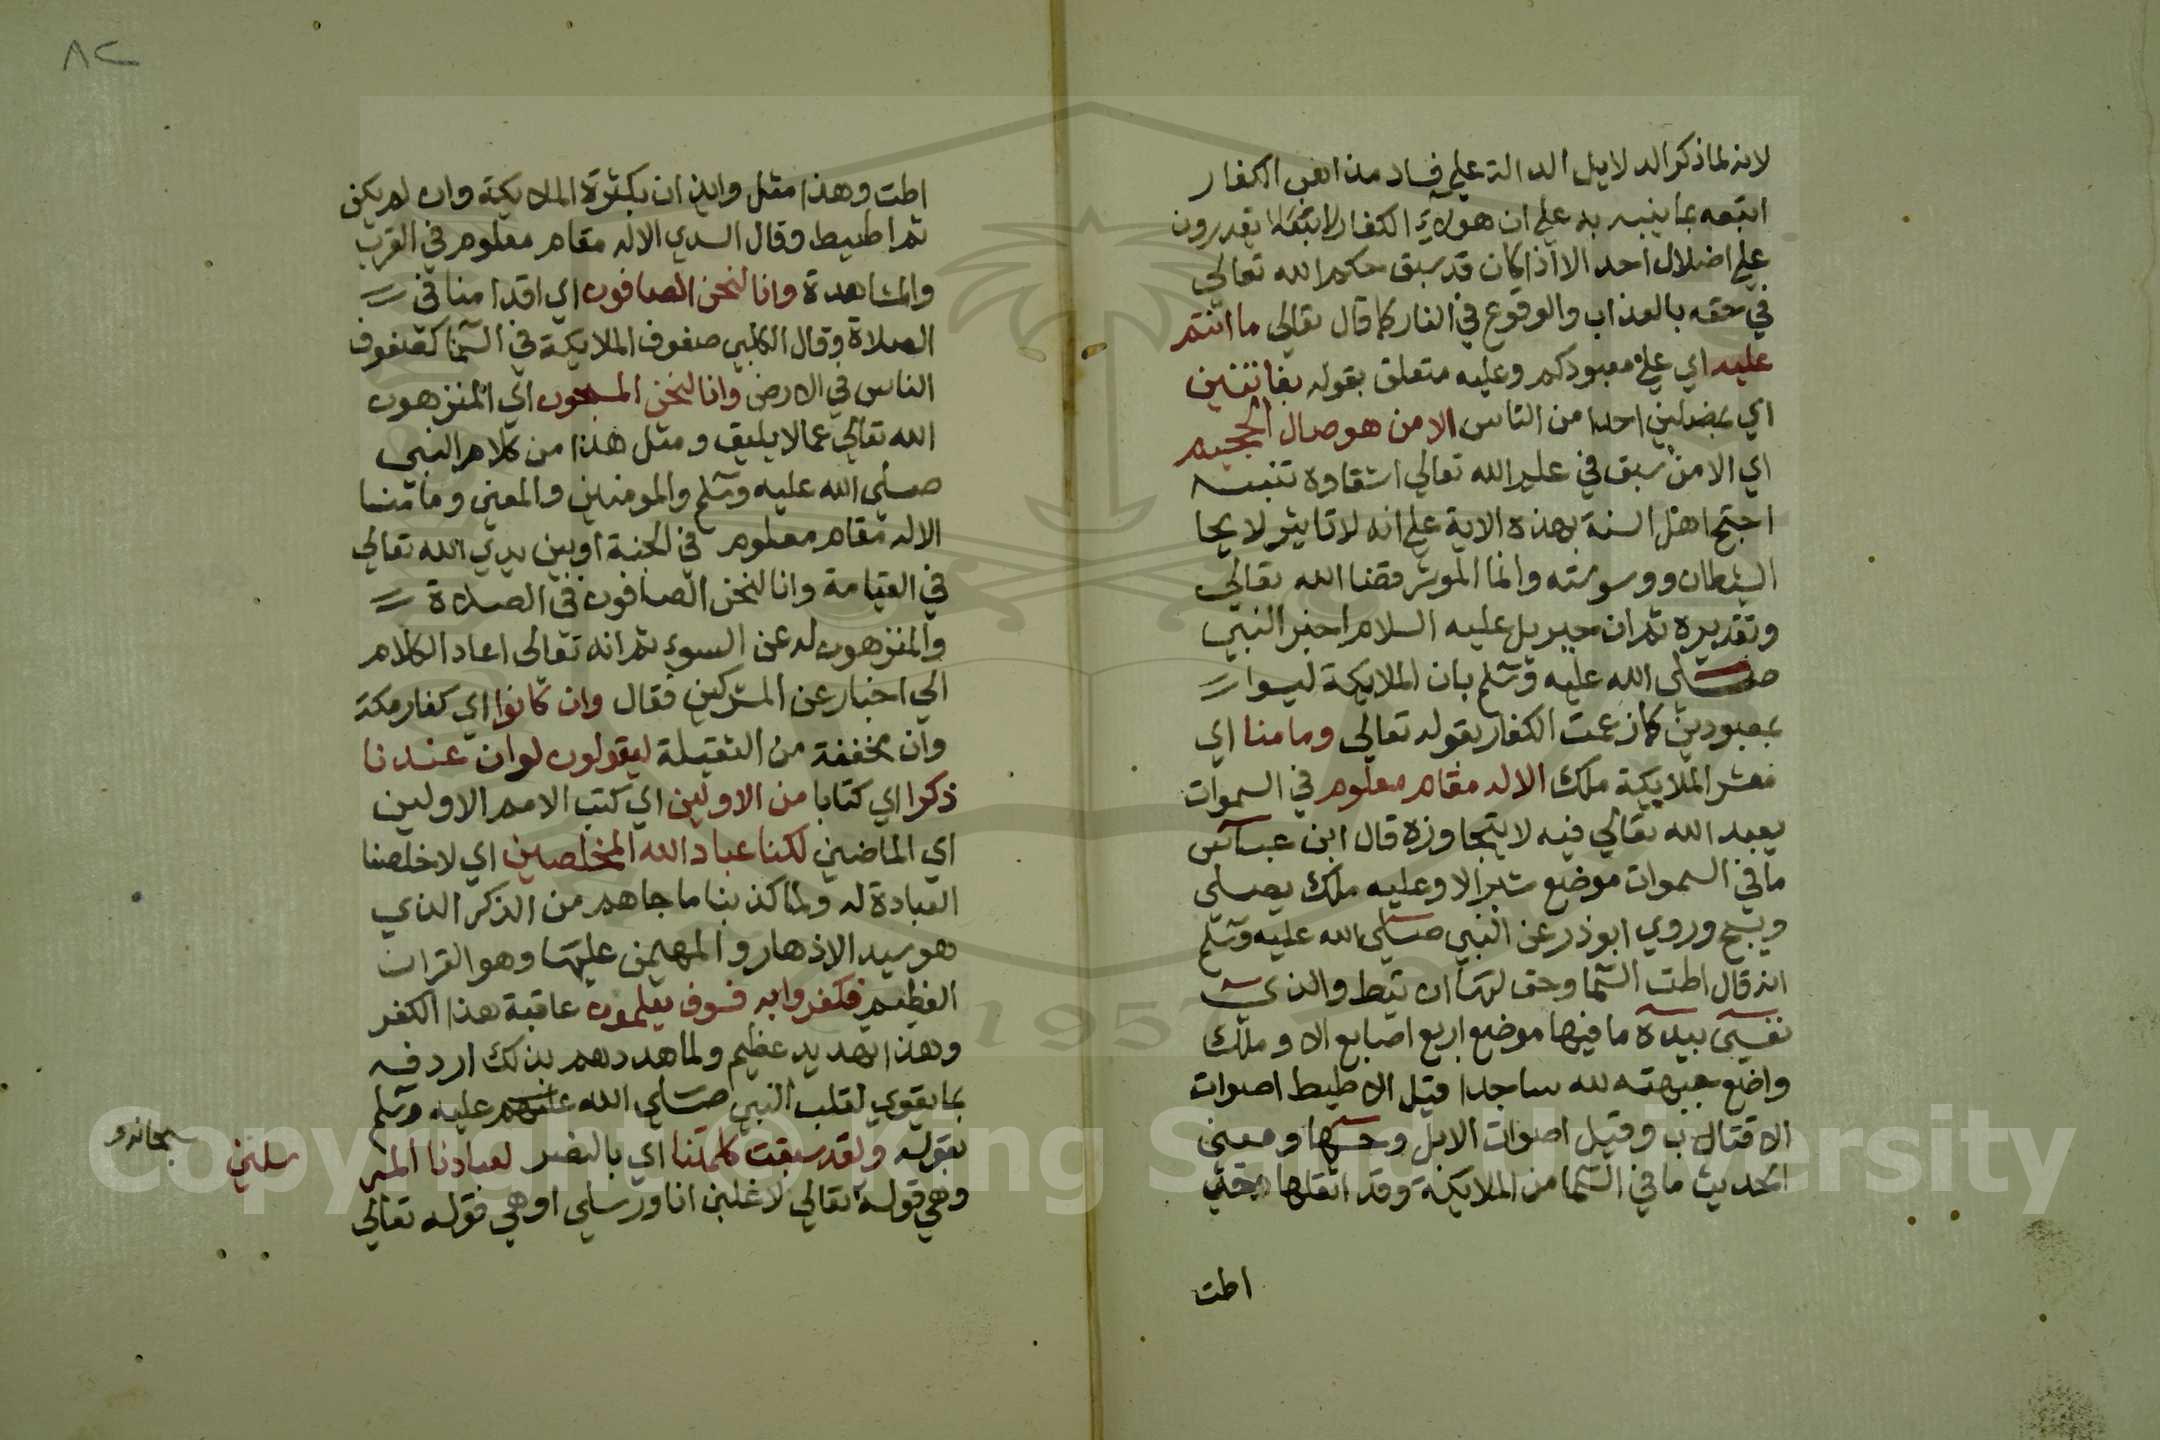 لانه لما ذكر الدلايل الدالة علي فساد مذاهب الكفار
اتبعه بما ينبه به علي ان هولاء الكفار لا يقدرون
علي اضلال احد الا اذا كان قد سبق حكم الله تعالي
في حقه بالعذاب والوقوع في النار كما قال تعالي ما انتم
عليه اي علي معبودكم وعليه متعلق بقوله بفاتنين
اي بمضلين احدا من الناس الا من هو صال الجحيم
اي الا من سبق في علم الله تعالي اشقاوة تنبيه
احتج اهل السنة بهذه الاية علي انه لا تاثير لايحا
الشيطان ووسوسته وانما الموثر قضا الله تعالي
وتقديره ثم ان جبريل عليه السلام اخبر النبي
صلي الله عليه وسلم بان الملايكة ليسوا
بمعبودين كما زعمت الكفار بقوله تعالي وما منا اي
معشر الملايكة ملك الا له مقام معلوم في السموات
يعبد الله تعالي فيه لا يتجاوزه قال ابن عباس
ما في السموات موضع شبر الا وعليه ملك يصلي
ويسبح وروي ابوذر عن النبي صلي الله عليه وسلم
انه قال اطت السما وحق لها ان تيط والذي
نفسي بيده ما فيها موضع اربع اصابع الا وملك
واضع جبهته لله ساجدا قيل الاطيط اصوات
الاقتاب وقيل اصوات الابل وحسها ومعني
الحديث ما في السما من الملايكة وقد اثقلها حتي
اطت
٨٢
اطت وهذا مثل وايذان بكثرة الملايكة وان لم يكن
ثم اطيط وقال السدي الا له مقام معلوم في القرب
والمشاهدة وانا لنحن الصافون اي اقدامنا في
الصلاة وقال الكلبي صفوف الملايكة في السما كصفوف
الناس في الارض وانا لنحن المسبحون اي المنزهون
الله تعالي عما لا يليق ومثل هذا من كلام النبي
صلي الله عليه وسلم والمومنين والمعني وما منا
الا له مقام معلوم في الجنة او بين يدي الله تعالي
في القيامة وانا لنحن الصافون في الصلاة
والمنزهون له عن السوء ثم انه تعالي اعاد الكلام
الي اخبار عن المشركين فقال وان كانوا اي كفار مكة
وان مخففة من الثقيلة ليقولون لو ان عندنا
ذكرا اي كتابا من الاولين اي كتب الامم الاولين
اي الماضين لكنا عباد الله المخلصين اي لاخلصنا
العبادة له ولما كذبنا ما جاهم من الذكر الذي
هو سيد الاذهار والمهيمن عليها وهو القران
العظيم فكفروا به فسوف يعلمون عاقبة هذا الكفر
وهذا تهديد عظيم ولما هددهم بذلك اردفه
بما يقوي لقلب النبي صلي الله عليه وسلم
بقوله ولقد سبقت كلمتنا اي بالنصر لعبادنا المر
سلين
سبحانه و
وهي قوله تعالي لاغلبن انا ورسلي او هي قوله تعالي
Copyright © King Saud University
1957